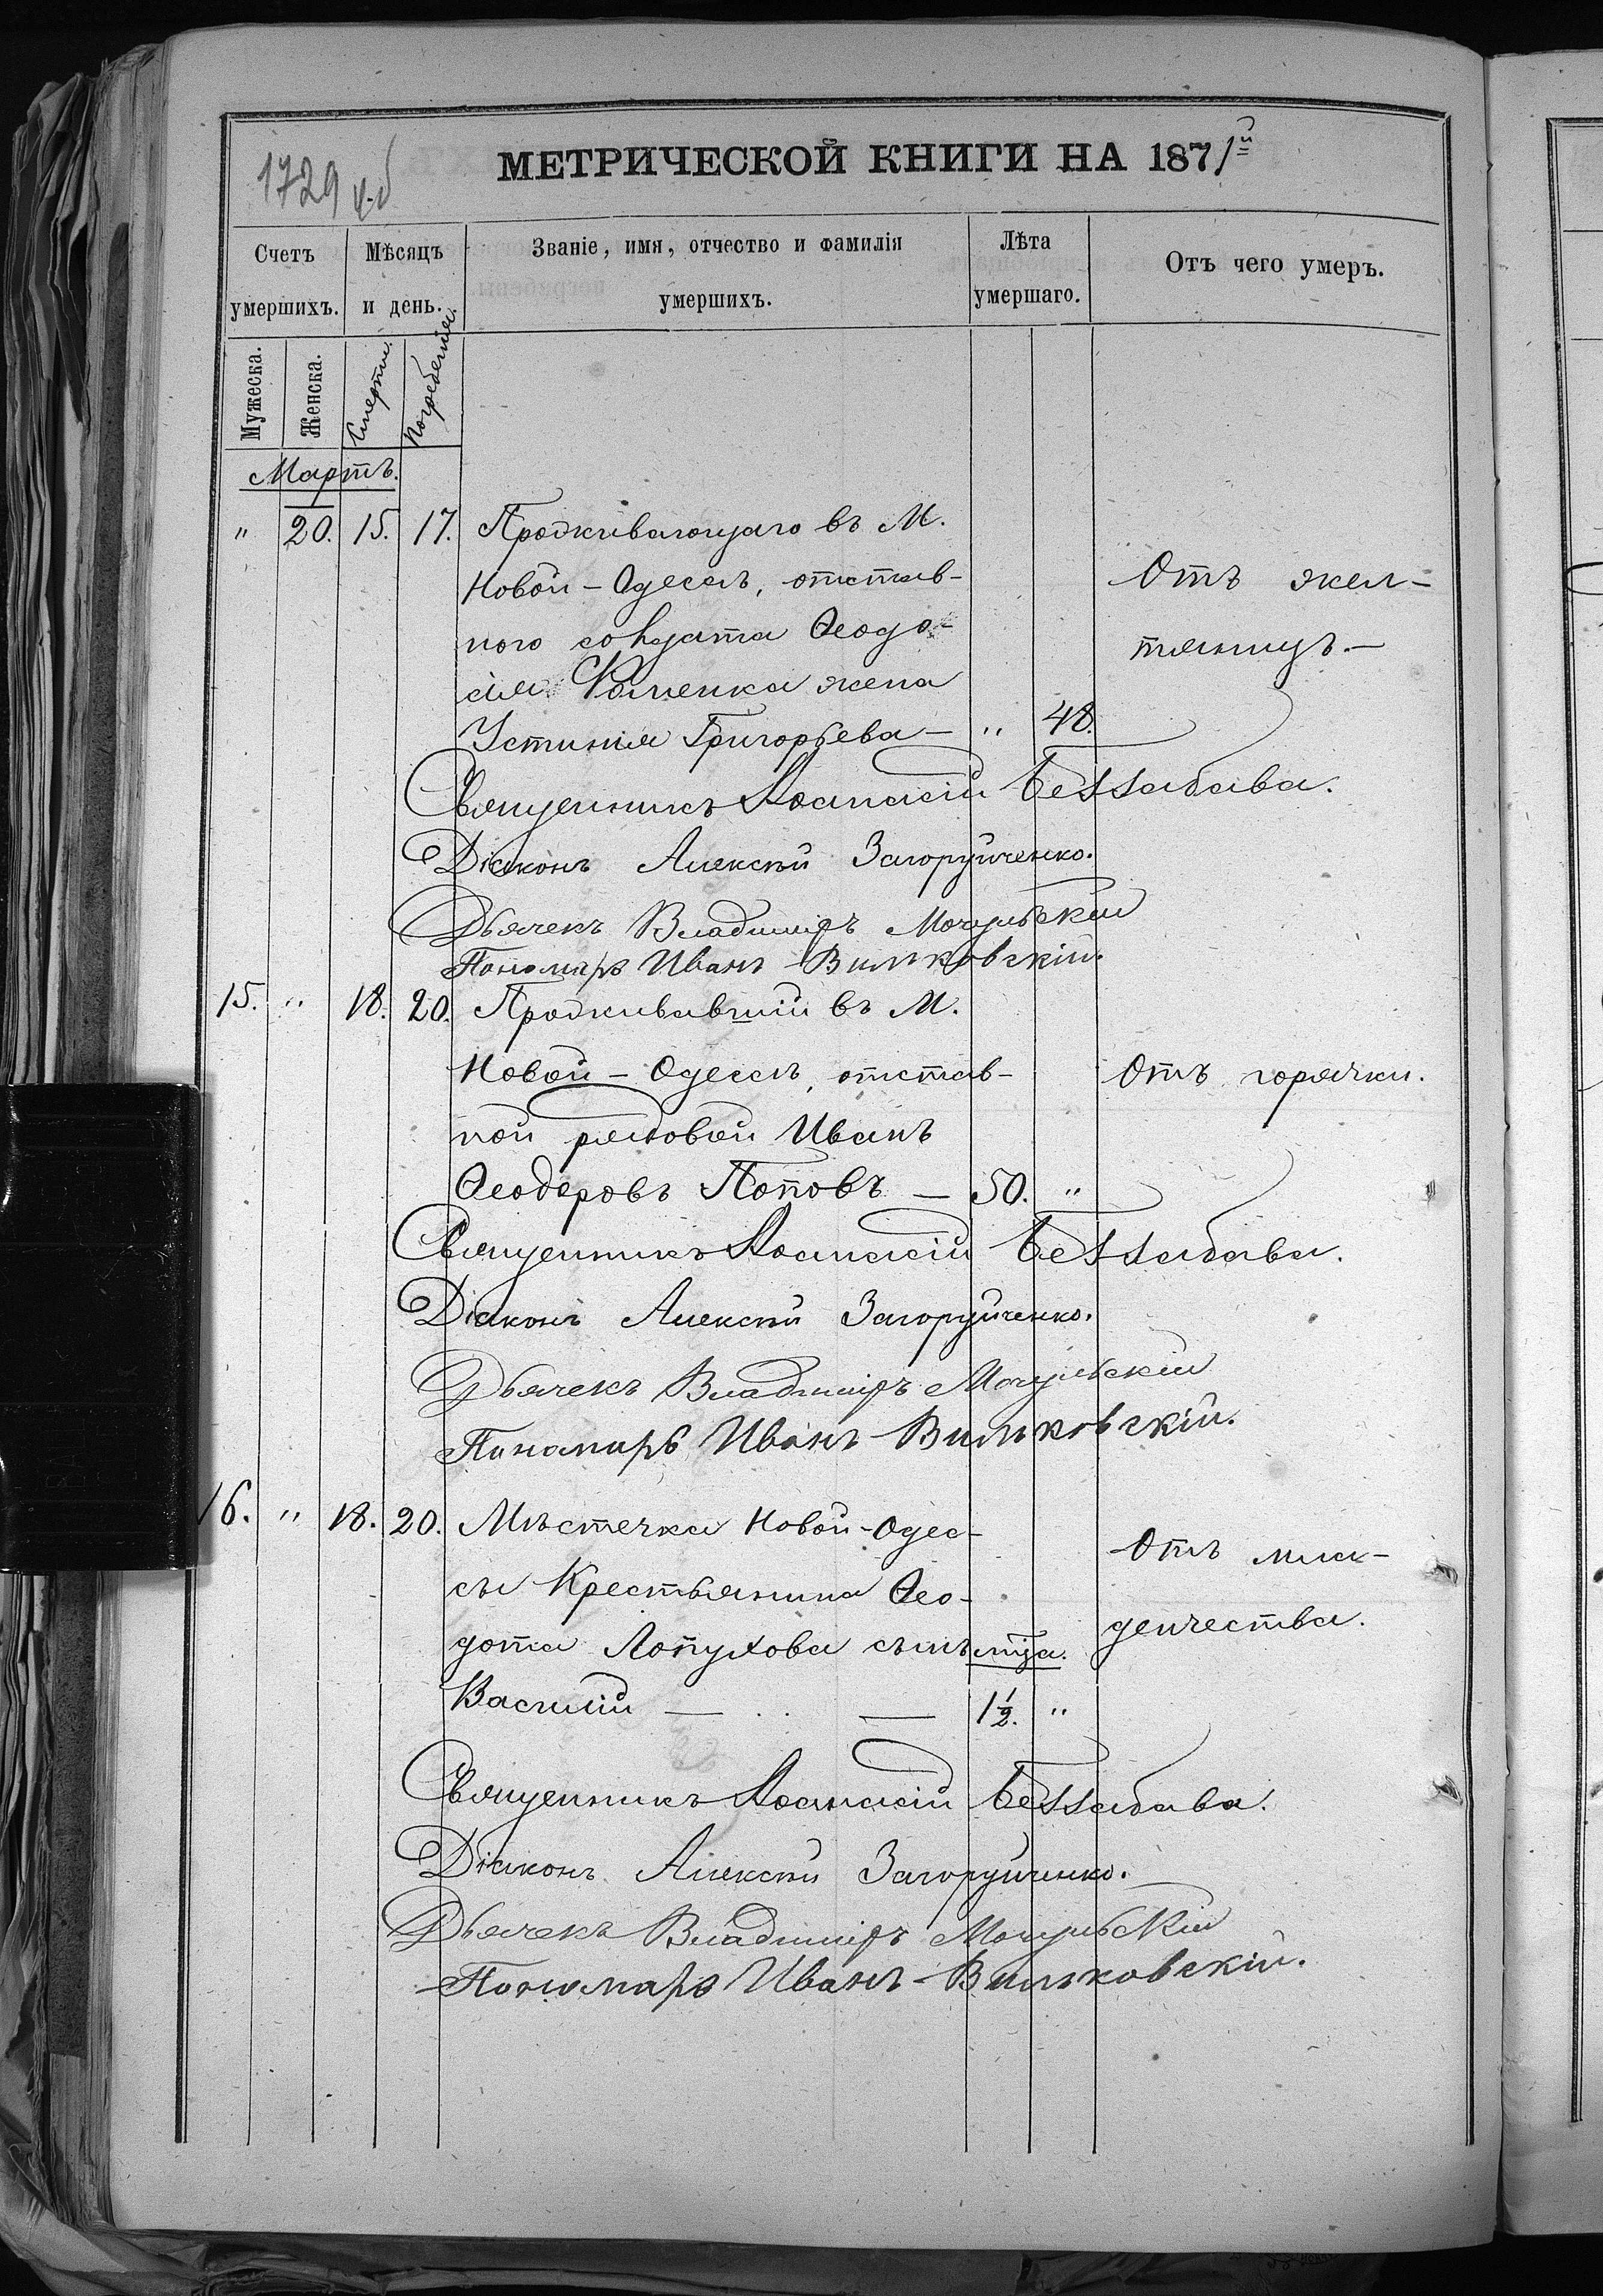 1729 ч.б
МЕТРИЧЕСКОЙ КНИГИ НА 1871й
Счетъ умершихъ.
Мѣсяцъ и день.
Званіе, имя, отчество и фамилія умершихъ.
Лѣта умершаго.
Отъ чего умеръ.
Мужеска.
Женска.
Смерти.
Погребенія.
Мартъ.
" 20. 15. 17. Проживающаго въ М.
Новой-Одессѣ, отстав-
Отъ жел-
ного солдата Ѳеодо-
тяницъ.-
сія жена
Устинія Григорьева - " 48.
Священникъ Аѳанасій Беззабава.
Діаконъ Алексѣй Загоруйченко.
Дьячекъ Владиміръ Мочульскій
Пономарь Иванъ Вильковскій.
15. " 18. 20. Проживавшій въ М.
Новой-Одессѣ, отстав-
Отъ горячки.
ной рядовой Иванъ
Ѳеодоровъ Поповъ - 50. "
Священникъ Аѳанасій Беззабава.
Діаконъ Алексѣй Загоруйченко.
Дьячекъ Владиміръ Мочульскій
Пономарь Иванъ Вильковскій.
16. " 18. 20. Мѣстечка Новой-Одес-
Отъ мла-
сы Крестьянина Ѳео-
денчества.
дота Лопухова сынъ мца.
Василій - - 1½. "
Священникъ Аѳанасій Беззабава.
Діаконъ Алексѣй Загоруйченко.
Дьячекъ Владиміръ Мочульскій
Пономарь Иванъ Вильковскій.